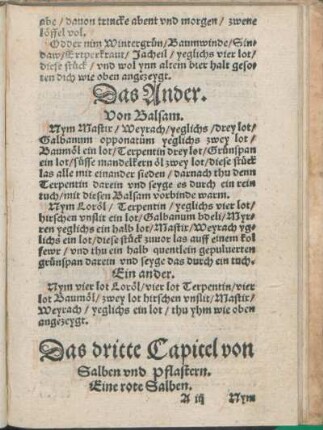 obe / dauon trincke abent vnd morgen / zwene
löffel vol.
Odder nim Wintergrün / Baumwinde / Sin-
daw / Ertperkraut / Jacheil / yeglichs vier lot /
diese stück / vnd wol ynn altem bier halt geso-
ten dich wie oben angezeygt.
Das Ander.
Von Balsam.
Nym Mastix / Weyrach / yeglichs / drey lot /
Galbanum opponatum yeglichs zwey lot /
Baumöl ein lot / Terpentin drey lot / Grünspan
ein lot / süsse mandelkern öl zwey lot / diese stück
las alle mit einander sieden / darnach thu denn
Terpentin darein vnd seyge es durch ein rein
tuch / mit diesen Balsam vorbinde warm.
Nym Loröl / Terpentin / yeglichs vier lot /
hirschen vnslit ein lot / Galbanum bdeli / Myr-
ren yeglichs ein halb lot / Mastix / Weyrach yg-
lichs ein lot / diese stück zuuor las auff einem kol
fewr / vnd thu ein halb quentlein gepuluerten
grünspan darein vnd seyge das durch ein tuch.
Ein ander.
Nym vier lot Loröl / vier lot Terpentin / vier
lot Baumöl / zwey lot hirschen vnslit / Mastix /
Weyrach / yeglichs ein lot / thu yhm wie oben
angezeygt.
Das dritte Capitel von
Salben vnd Pflastern.
Eine rote Salben.
A iij Nym